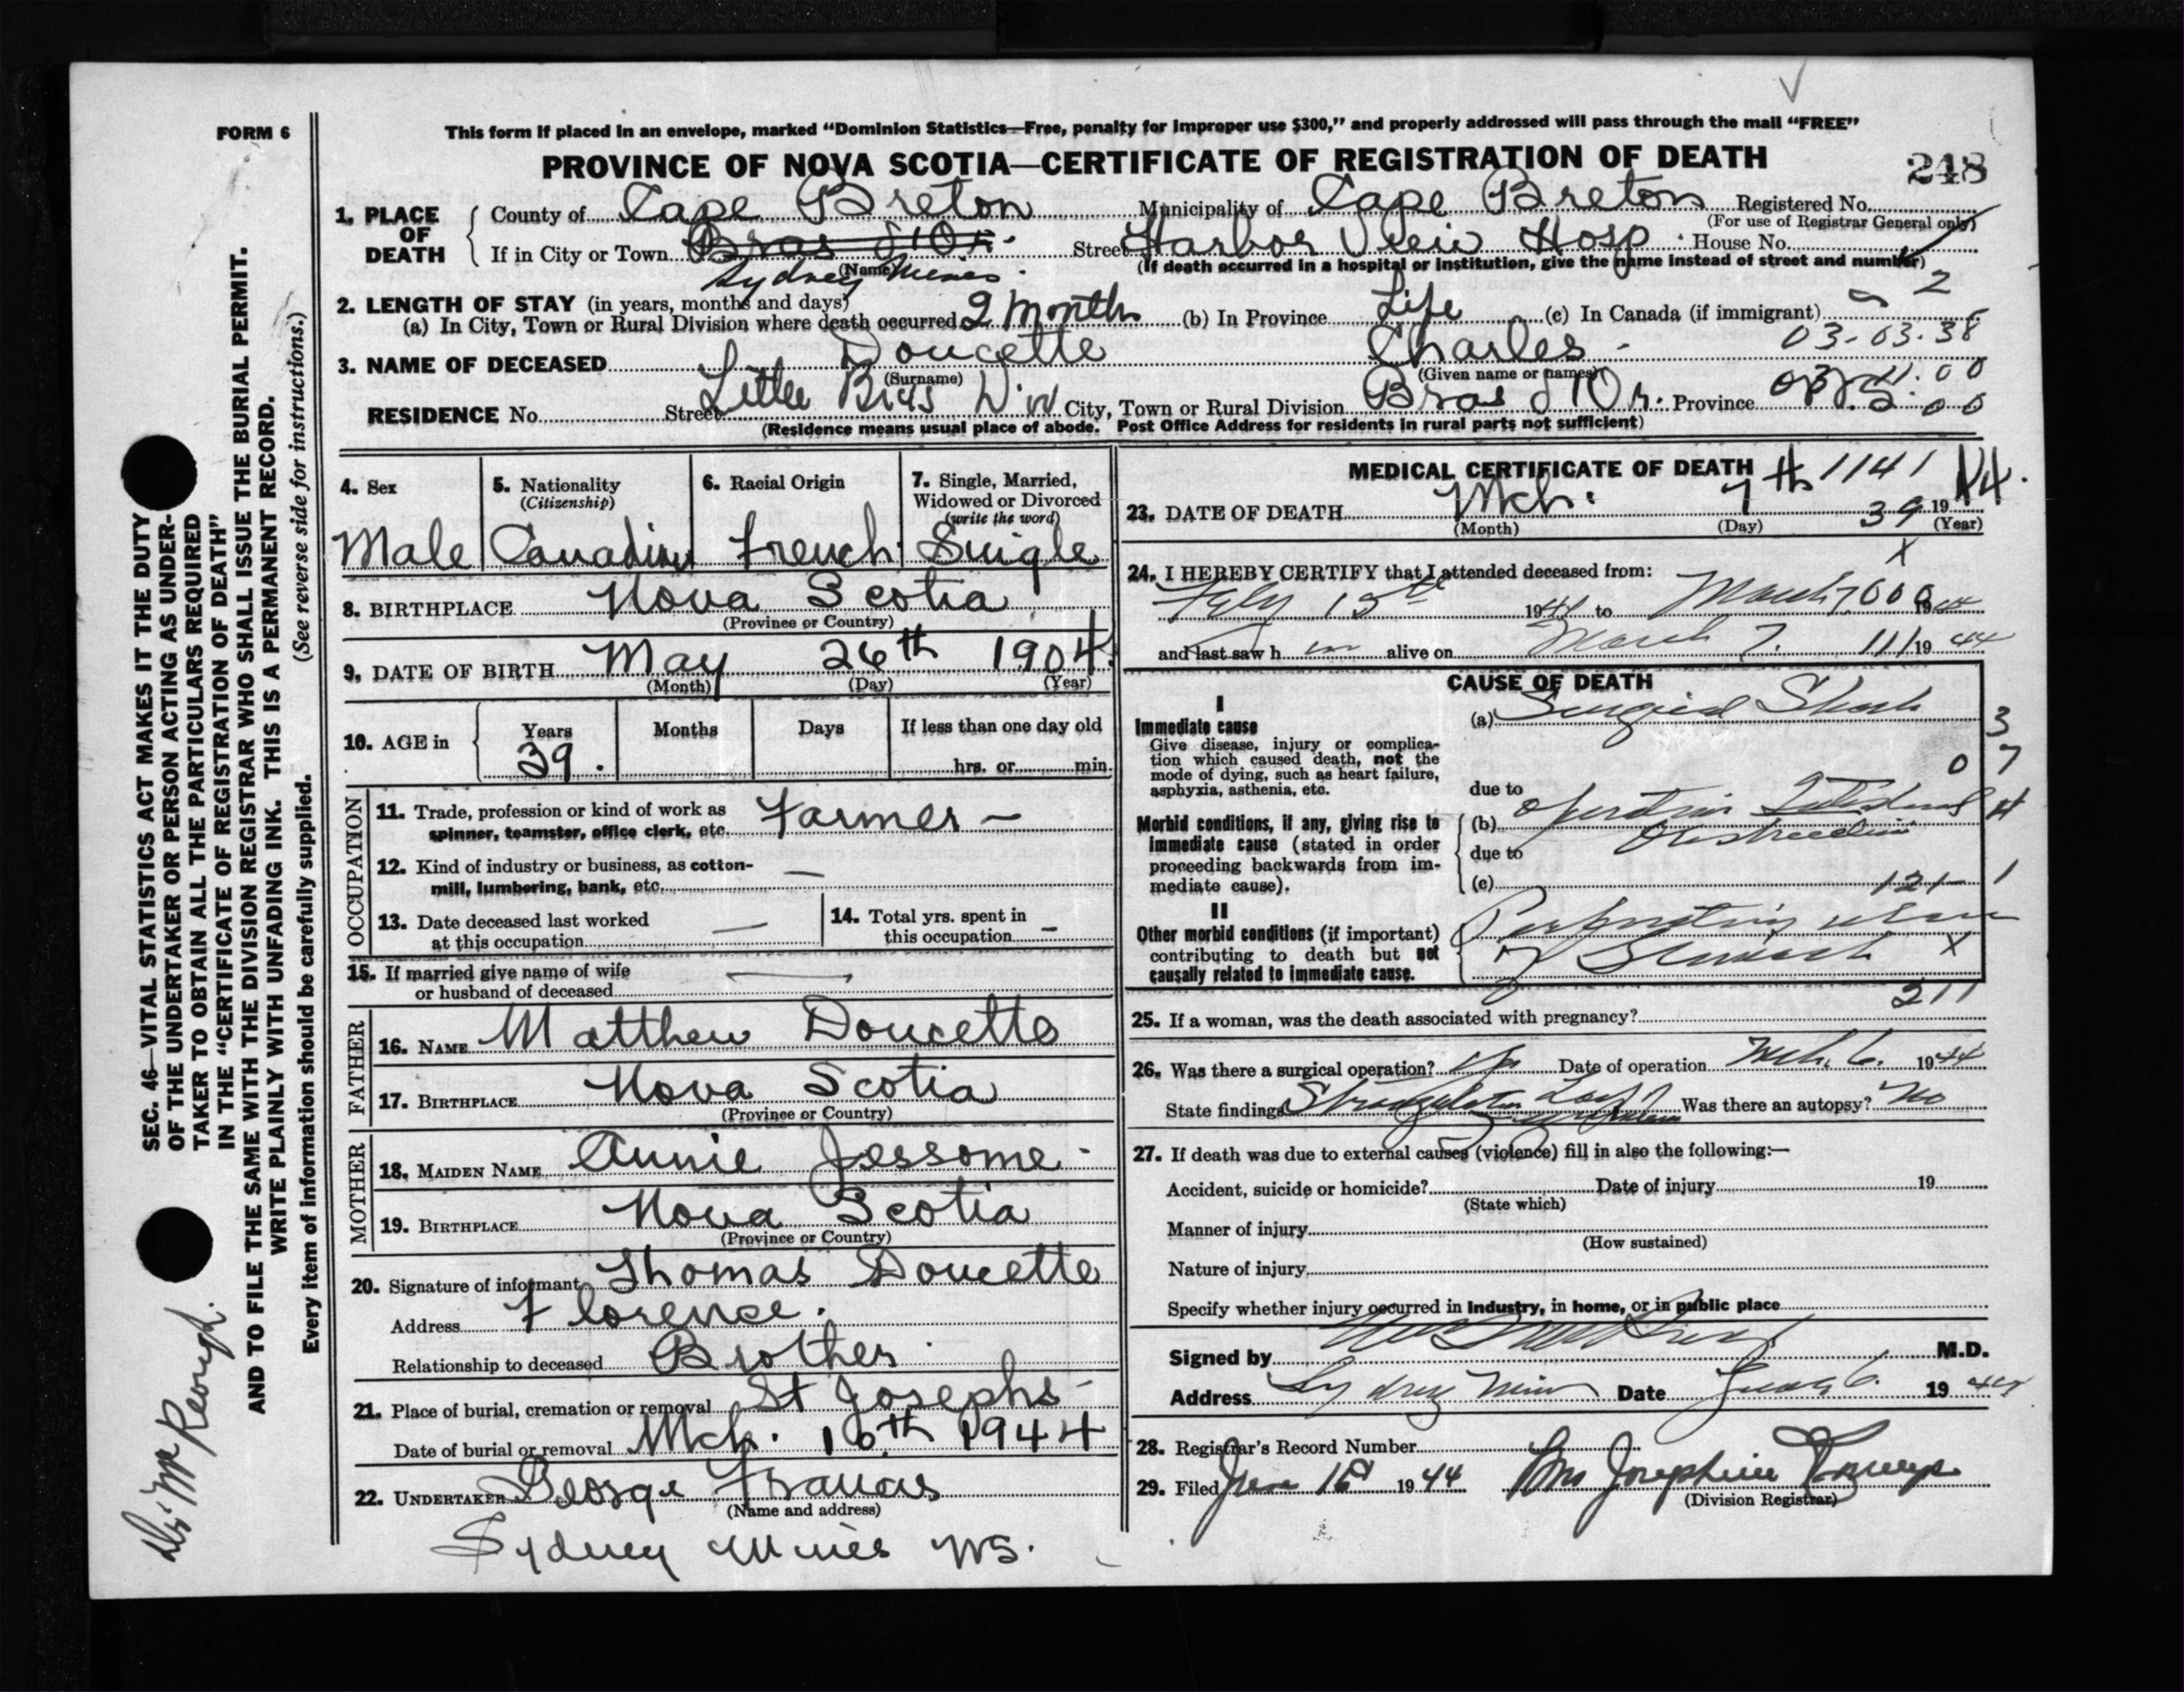 FORM 6
This form if placed in an envelope, marked “Dominion Statistics—Free, penalty for improper use $300,” and properly addressed will pass through the mail “FREE”
PROVINCE OF NOVA SCOTIA—CERTIFICATE OF REGISTRATION OF DEATH
248
1. PLACE OF DEATH
County of Cape Breton Municipality of Cape Breton Registered No.
(For use of Registrar General only)
If in City or Town Bras d'Or Street Harbor View Hosp. House No.
(Name) (If death occurred in a hospital or institution, give the name instead of street and number)
Sydney Mines.
2. LENGTH OF STAY (in years, months and days) 2
(a) In City, Town or Rural Division where death occurred 2 Months (b) In Province Life (c) In Canada (if immigrant)
03-03-38
3. NAME OF DECEASED Doucette Charles
(Surname) (Given name or names)
RESIDENCE No. Street Little Bras D'or City, Town or Rural Division Bras d'Or. Province
(Residence means usual place of abode. Post Office Address for residents in rural parts not sufficient)
4. Sex
5. Nationality (Citizenship)
6. Racial Origin
7. Single, Married, Widowed or Divorced (write the word)
Male Canadian French Single
8. BIRTHPLACE Nova Scotia
(Province or Country)
9. DATE OF BIRTH May 26th 1904.
(Month) (Day) (Year)
10. AGE in Years Months Days If less than one day old
39. hrs. or min.
OCCUPATION
11. Trade, profession or kind of work as
spinner, teamster, office clerk, etc. Farmer —
12. Kind of industry or business, as cotton-
mill, lumbering, bank, etc. —
13. Date deceased last worked
at this occupation —
14. Total yrs. spent in
this occupation —
15. If married give name of wife
or husband of deceased —
FATHER
16. NAME Matthew Doucette
17. BIRTHPLACE Nova Scotia
(Province or Country)
MOTHER
18. MAIDEN NAME Annie Jessome
19. BIRTHPLACE Nova Scotia
(Province or Country)
20. Signature of informant Thomas Doucette
Address Florence.
Relationship to deceased Brother
21. Place of burial, cremation or removal St Josephs
Date of burial or removal Mch. 10th 1944
22. UNDERTAKER George Francis
(Name and address)
Sydney Mines NS.
MEDICAL CERTIFICATE OF DEATH # 1141
23. DATE OF DEATH Mch. 7th 39 19 44.
(Month) (Day) (Year)
24. I HEREBY CERTIFY that I attended deceased from:
Feby 15th 1944 to March 7 000 1944
and last saw h im alive on March 7. 111 19 44
CAUSE OF DEATH
I
Immediate cause
Give disease, injury or complica-
tion which caused death, not the
mode of dying, such as heart failure,
asphyxia, asthenia, etc.
(a) Surgical Shock 3
0 7
due to
Morbid conditions, if any, giving rise to
immediate cause (stated in order
proceeding backwards from im-
mediate cause).
(b) Operation Intestinal 4
Obstruction
due to
(c) 121 1
II
Other morbid conditions (if important)
contributing to death but not
causally related to immediate cause.
Perforating ulcer
of Stomach X
211
25. If a woman, was the death associated with pregnancy?
26. Was there a surgical operation? Yes Date of operation Mch. 6. 1944
State findings Was there an autopsy? No
27. If death was due to external causes (violence) fill in also the following:—
Accident, suicide or homicide? Date of injury 19
(State which)
Manner of injury
(How sustained)
Nature of injury
Specify whether injury occurred in industry, in home, or in public place
Signed by M.D.
Address Sydney Mines Date June 6. 19 44
28. Registrar's Record Number
29. Filed June 16 1944 Mrs Josephine
(Division Registrar)
SEC. 46—VITAL STATISTICS ACT MAKES IT THE DUTY
OF THE UNDERTAKER OR PERSON ACTING AS UNDER-
TAKER TO OBTAIN ALL THE PARTICULARS REQUIRED
IN THE “CERTIFICATE OF REGISTRATION OF DEATH”
AND TO FILE THE SAME WITH THE DIVISION REGISTRAR WHO SHALL ISSUE THE BURIAL PERMIT.
WRITE PLAINLY WITH UNFADING INK. THIS IS A PERMANENT RECORD.
Every item of information should be carefully supplied. (See reverse side for instructions.)
Dr. McKeough.